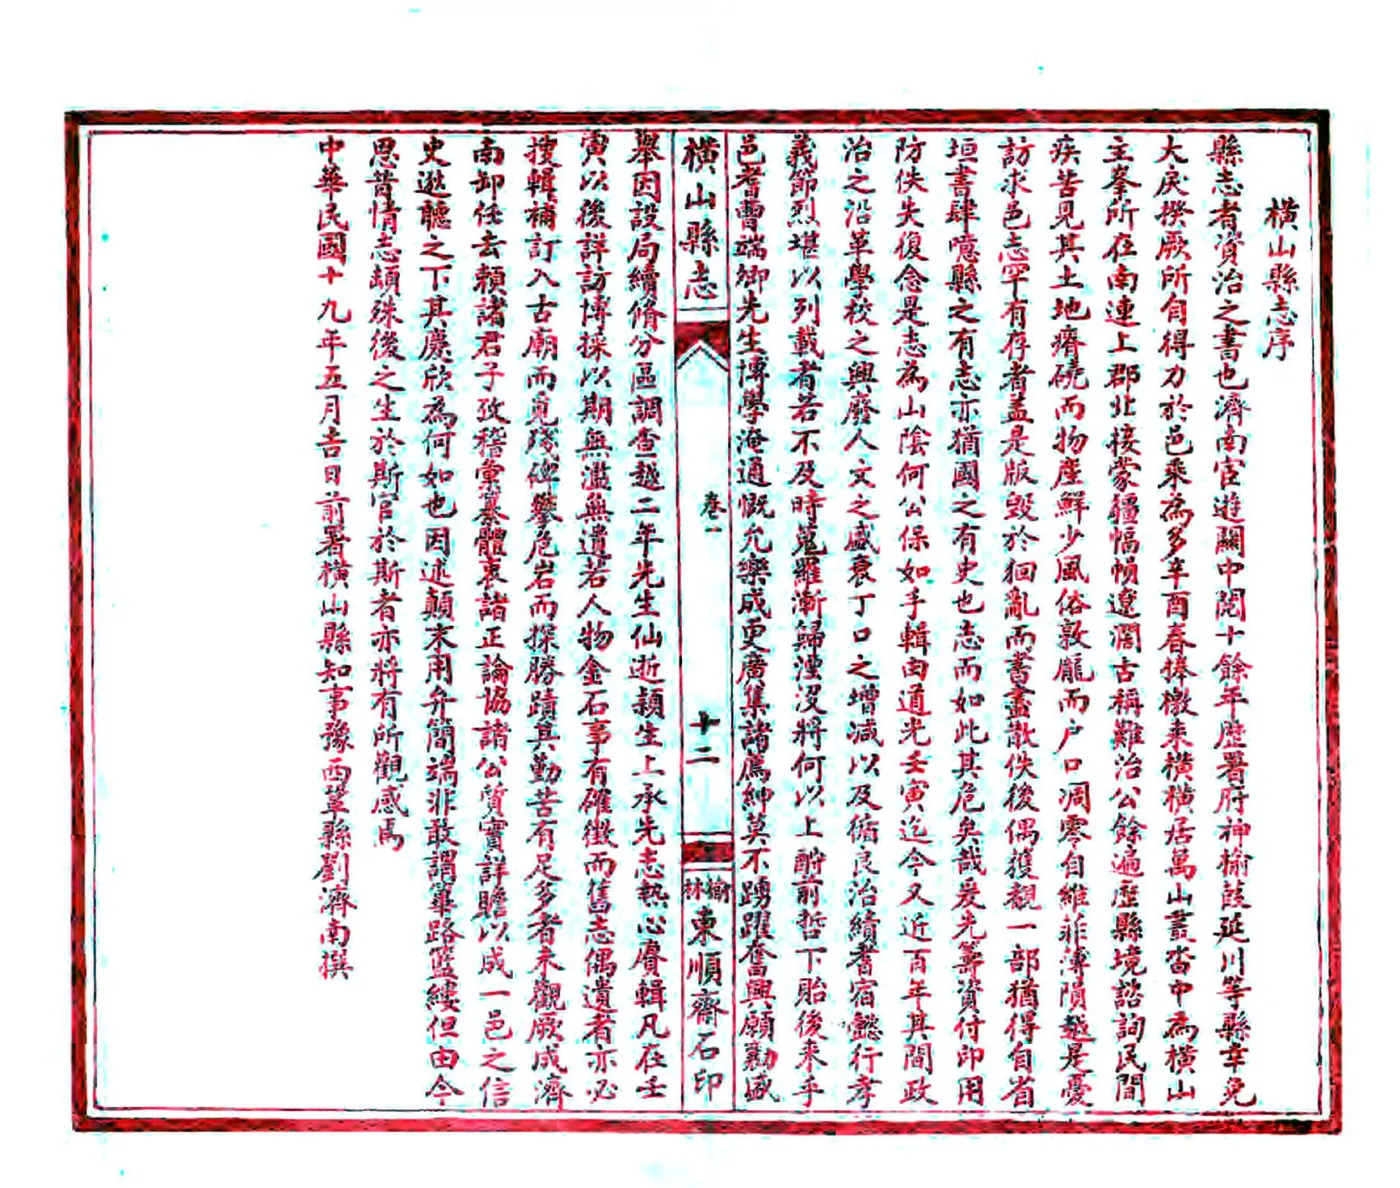 橫山縣志序
縣志者資治之書也濟南宦遊關中閱十餘年歷署府神榆葭延川等縣幸免
大戾揆厥所自得力於邑乘為多辛酉春捧檄來橫橫居萬山叢沓中為橫山
主峯所在南連上郡北接蒙疆幅幀遼濶古稱難治公餘遍歷縣境諮詢民間
疾苦見其土地瘠磽而物產鮮少風俗敦龐而户口凋零自維菲薄隕越是憂
訪求邑志罕有存者盖是版毀於徊亂而書盡散佚後偶獲觀一部猶得自省
垣書肆噫縣之有志亦猶國之有史也志而如此其危矣哉爰先籌資付印用
防佚失復念是志為山陰何公保如手輯由道光壬寅迄今又近百年其間政
治之沿革學校之興廢人文之盛衰丁口之增減以及循良治績耆宿懿行孝
義節烈堪以列載者若不及時蒐羅漸歸湮沒將何以上酧前哲下貽後來乎
邑耆曹端卿先生博學淹通慨允樂成更廣集諸薦紳莫不踴躍奮興願勷盛
橫山縣志
卷一
十二
榆林東順齋石印
舉因設局續脩分區調查越二年先生仙逝頴生上承先志熱心賡輯凡在壬
寅以後詳訪博採以期無濫無遺若人物金石事有確徵而舊志偶遺者亦必
搜輯補訂入古廟而覓殘碑攀危岩而探勝蹟其勤苦有足多者未觀厥成濟
南卸任去賴諸君子攷稽彙纂體衷諸正論協諸公質實詳贍以成一邑之信
史逖聽之下其慶欣為何如也因述顛末用弁簡端非敢謂篳路藍縷但由今
思昔情志頗殊後之生於斯官於斯者亦將有所觀感焉
中華民國十九年五月吉日前署橫山縣知事豫西鞏縣劉濟南撰